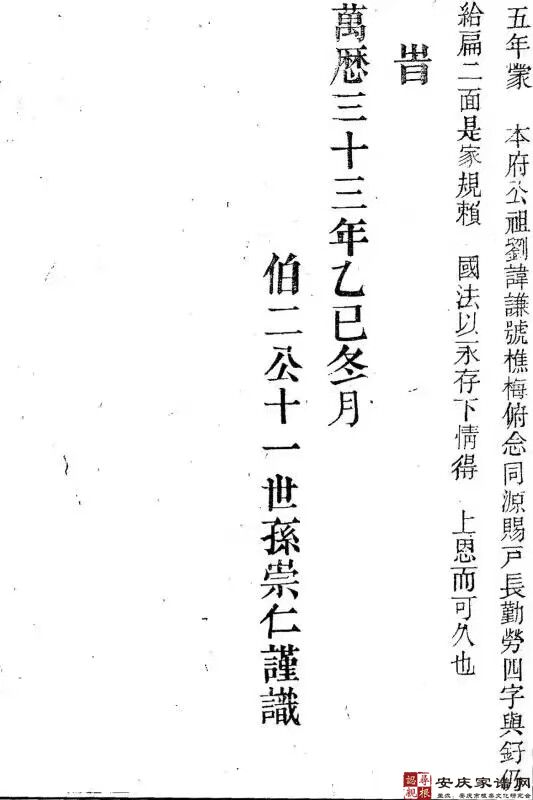 五年蒙 本府公祖劉諱謙號樵梅俯念同源賜戶長勤勞四字與釨仍
給扁二面是家規賴 國法以永存下情得 上恩而可久也
旹
萬歷三十三年乙巳冬月
伯二公十一世孫崇仁謹識
尋根
認親
安庆家谱网
主办：安庆市姓氏文化研究会